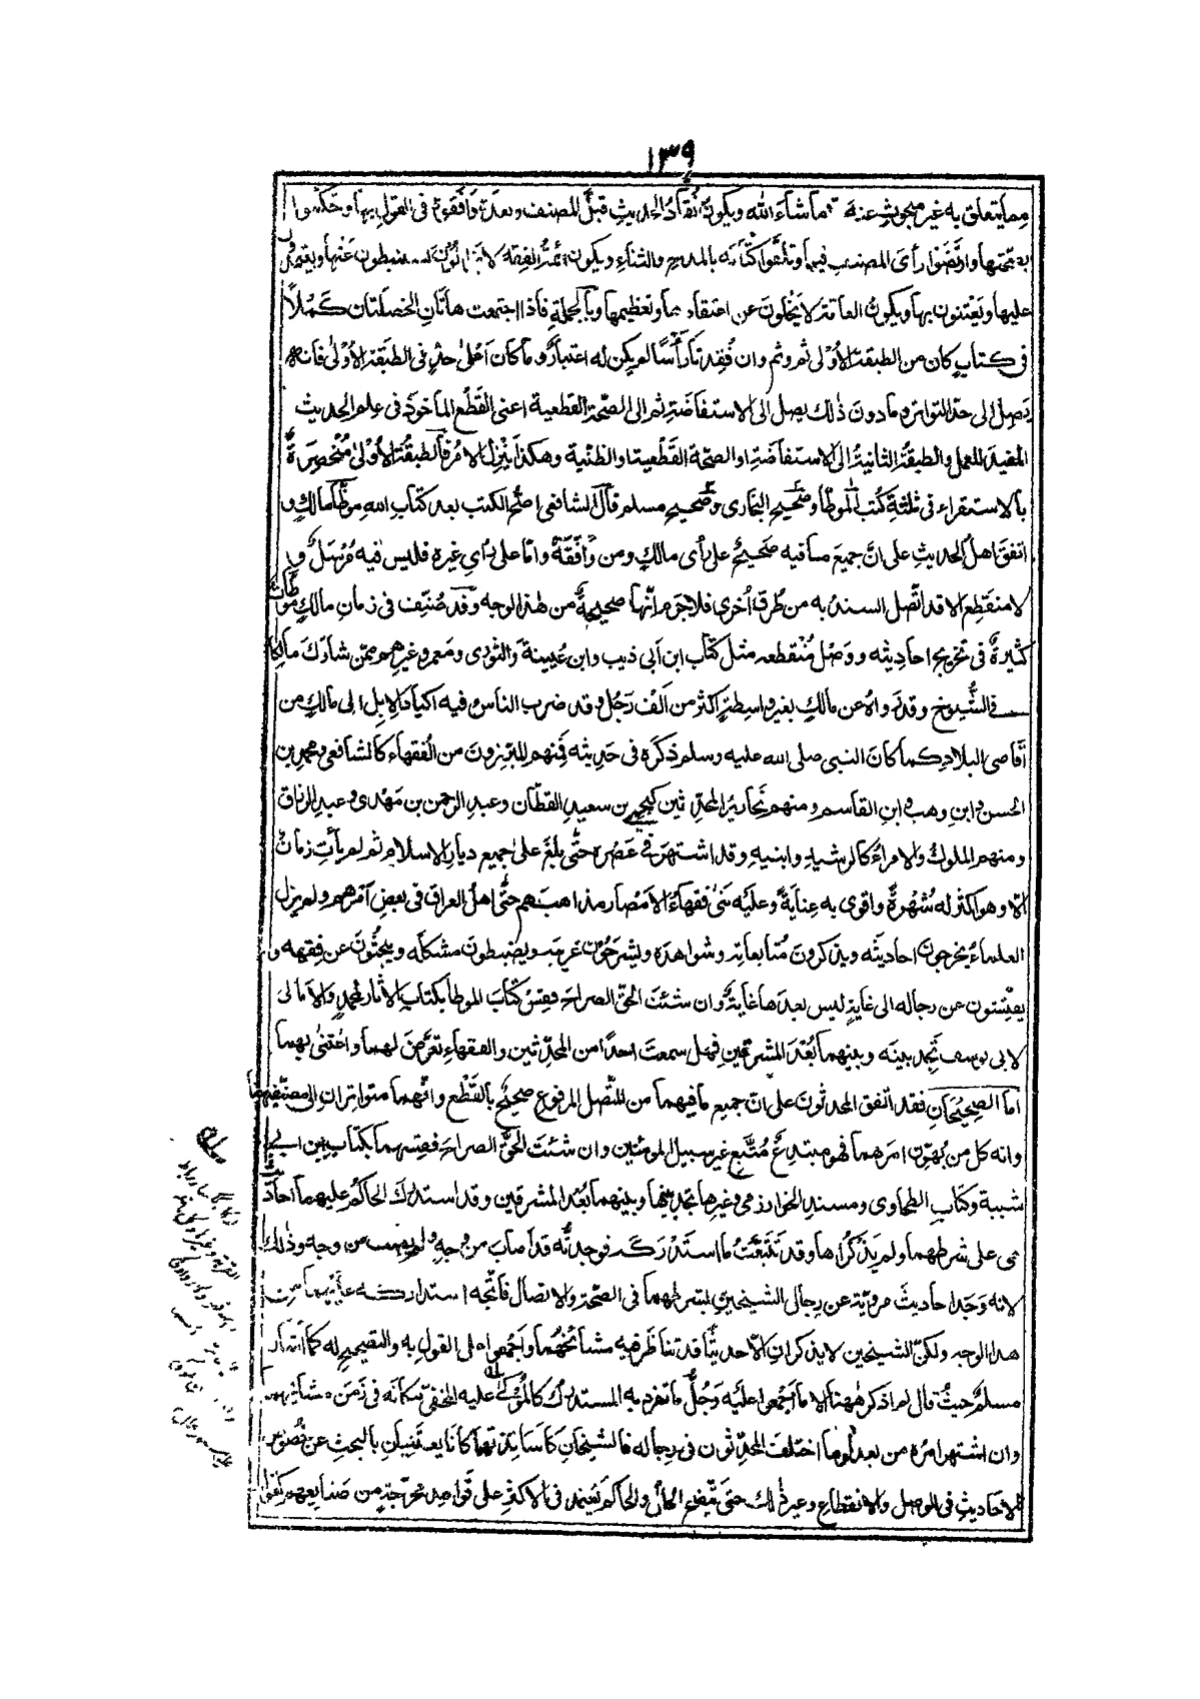 ١٣٩
مما يتعلق به غير مبحوث عنه الا ما شاء الله ويكون نقاد الحديث قبل المصنف وبعده وافقوه فى القول بها وحكموا
بصحتها وارتضوا رأى المصنف فيها وتلقوا كتابه بالمدح والثناء ويكون ائمة الفقه لا يزالون يستنبطون عنها ويعتمدون
عليها ويعتنون بها ويكون العامة لا يخلون عن اعتقادها وتعظيمها وبالجملة فاذا اجتمعت هاتان الخصلتان كملًا
فى كتاب كان من الطبقة الاولى ثم وثم وان فقدتا رأسا لم يكن له اعتبار وما كان اعلى حد فى الطبقة الاولى فانه
يصل الى حد التواتر وما دون ذلك يصل الى الاستفاضة ثم الى الصحة القطعية اعنى القطع الماخوذ فى علم الحديث
المفيد للعمل والطبقة الثانية الى الاستفاضة او الصحة القطعية او الظنية وهكذا ينزل الامر فالطبقة الاولى منحصرة
بالاستقراء فى ثلثة كتب الموطأ وصحيح البخارى وصحيح مسلم قال الشافعى اصح الكتب بعد كتاب الله موطأ مالك و
اتفق اهل الحديث على ان جميع ما فيه صحيح على رأى مالك ومن وافقه واما على رأى غيره فليس فيه مرسل و
لا منقطع الا قد اتصل السند به من طرق اخرى فلا جرم انها صحيحة من هذا الوجه وقد صنف فى زمان مالك موطآت
كثيرة فى تخريج احاديثه ووصل منقطعه مثل كتاب ابن ابى ذيب وابن عيينة والثورى ومعمر وغيرهم ممن شارك مالكا
فى الشيوخ وقد رواه عن مالك بغير واسطة اكثر من الف رجل وقد ضرب الناس فيه اكباد الابل الى مالك من
اقاصى البلاد كما كان النبى صلى الله عليه وسلم ذكره فى حديثه فمنهم المبرزون من الفقهاء كالشافعى ومحمد بن
الحسن وابن وهب وابن القاسم ومنهم نحارير المحدثين كيحيى بن سعيد القطان وعبد الرحمن بن مهدى وعبد الرزاق
ومنهم الملوك والامراء كالرشيد وابنيه وقد اشتهر فى عصره حتى بلغ على جميع ديار الاسلام ثم لم يأت زمان
الا وهو اكثر له شهرة واقوى به عناية وعليه بنى فقهاء الامصار مذاهبهم حتى اهل العراق فى بعض امرهم ولم يزل
العلماء يخرجون احاديثه ويذكرون متابعاته وشواهده ويشرحون غريبه ويضبطون مشكله ويبحثون عن فقهه و
يفتشون عن رجاله الى غاية ليس بعدها غاية وان شئت الحق الصراح فقس كتاب الموطا بكتاب الاثار لمحمد والامالى
لابى يوسف تجد بينه وبينهما بعد المشرقين فهل سمعت احدا من المحدثين والفقهاء تعرض لهما واعتنى بهما
اما الصحيحان فقد اتفق المحدثون على ان جميع ما فيهما من المتصل المرفوع صحيح بالقطع وانهما متواتران الى مصنفيهما
وانه كل من يهون امرهما فهو مبتدع متبع غير سبيل المومنين وان شئت الحق الصراح فقسهما بكتاب ابن ابى
شيبة وكتاب الطحاوى ومسند الخوارزمى وغيرها تجد بينها وبينهما بعد المشرقين وقد استدرك الحاكم عليهما احاديث
هى على شرطهما ولم يذكراها وقد تتبعت ما استدركه فوجدته قد اصاب من وجه ولم يصب من وجه وذلك
لانه وجد احاديث مروية عن رجال الشيخين بشرطهما فى الصحة والاتصال فاتجه استدراكه عليهما من
هذا الوجه ولكن الشيخين لا يذكران الا حديثا قد تناظر فيه مشائخهما واجمعوا على القول به والتصحيح له كما اشار
مسلم حيث قال لم اذكر ههنا الا ما اجمعوا عليه وجل ما تفرد به المستدرك كالموكى عليه المخفى مكانه فى زمن مشائخهما
وان اشتهر امره من بعد او ما اختلف المحدثون فى رجاله فالشيخان كاساتذتهما كانا يعتنيان بالبحث عن نصوص
الاحاديث فى الوصل والانقطاع وغير ذلك حتى يتضح الحال والحاكم يعتمد فى الاكثر على قواعد مخرجة من صنائعهم كقوله